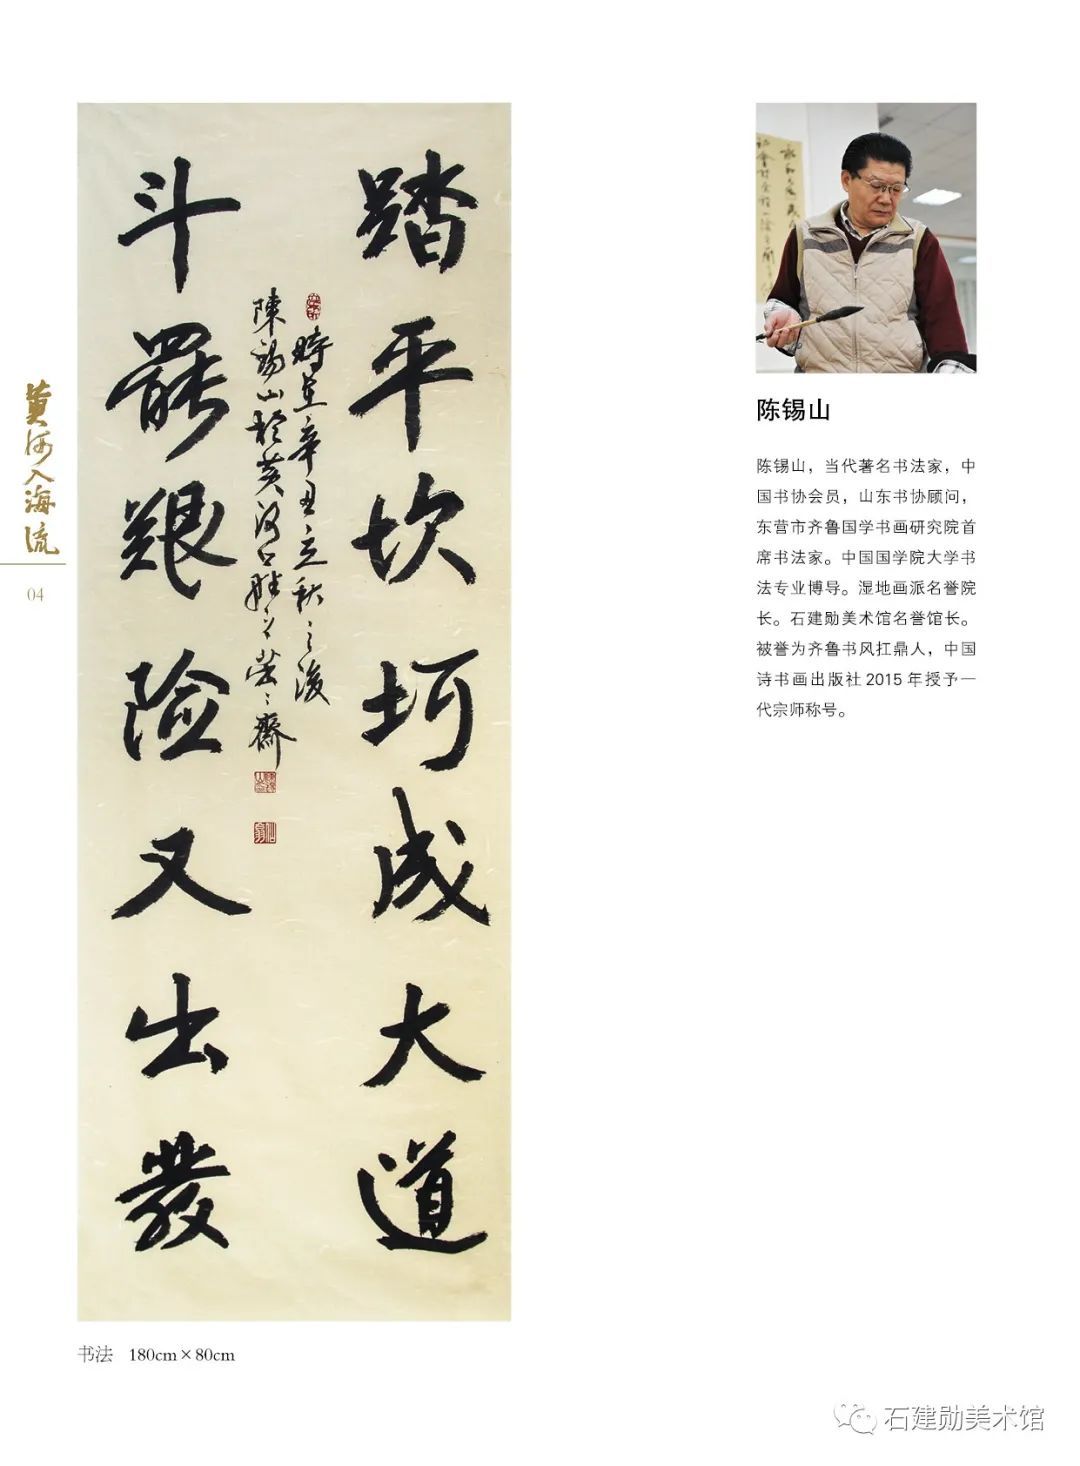 黄河入海流
04
踏平坎坷成大道
斗罢艰险又出發
時在辛丑立秋之後
陳錫山於黄河口
书法 180cm×80cm
陈锡山
陈锡山，当代著名书法家，中
国书协会员，山东书协顾问，
东营市齐鲁国学书画研究院首
席书法家。中国国学院大学书
法专业博导。湿地画派名誉院
长。石建勋美术馆名誉馆长。
被誉为齐鲁书风扛鼎人，中国
诗书画出版社 2015 年授予一
代宗师称号。
石建勋美术馆